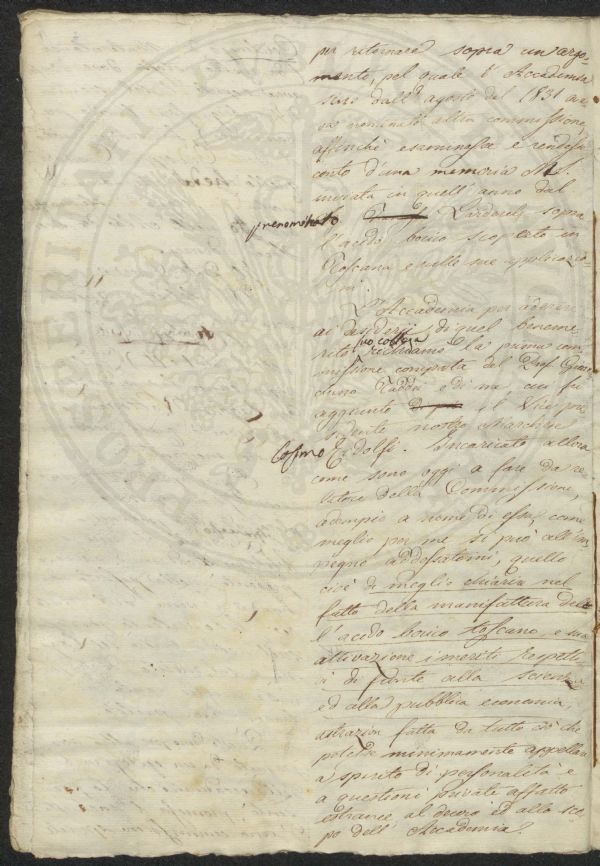 per ritornare sopra un argo-
mento, pel quale l'Accademia
sino dall' agosto del 1831 ave
va nominata altra commissione,
affinché esaminasse e rendesse
conto d'una memoria MS.
inviata in quell' anno dal
prenominato Larderel sopra
l'acido borico scoperto in
Toscana e sulle sue applicazio-
ni.
L'Accademia per aderire
ai desiderj di quel beneme
rito suo collega richiamò la prima com
missione composta del Prof. Giova
chino Taddei e di me cui fu
aggiunto il Vice pre
sidente nostro Marchese
Cosmo Ridolfi. Incaricato allora
come sono oggi a fare da re
latore della Commissione,
adempio a nome di essa, come
meglio per me si può all'im
pegno addossatomi, quello
cioè di meglio chiarir nel
fatto della manifattura dell
l'acido borico toscano, e sua
attivazione i meriti rispetti
vi di fronte alla scienza
ed alla pubblica economia,
astrazion fatta da tutto ciò che
potesse minimamente appellare
a spirito di personalità e
a questioni private affatto
estranee al decoro ed allo sco
po dell' Accademia.
PROSPERITATI